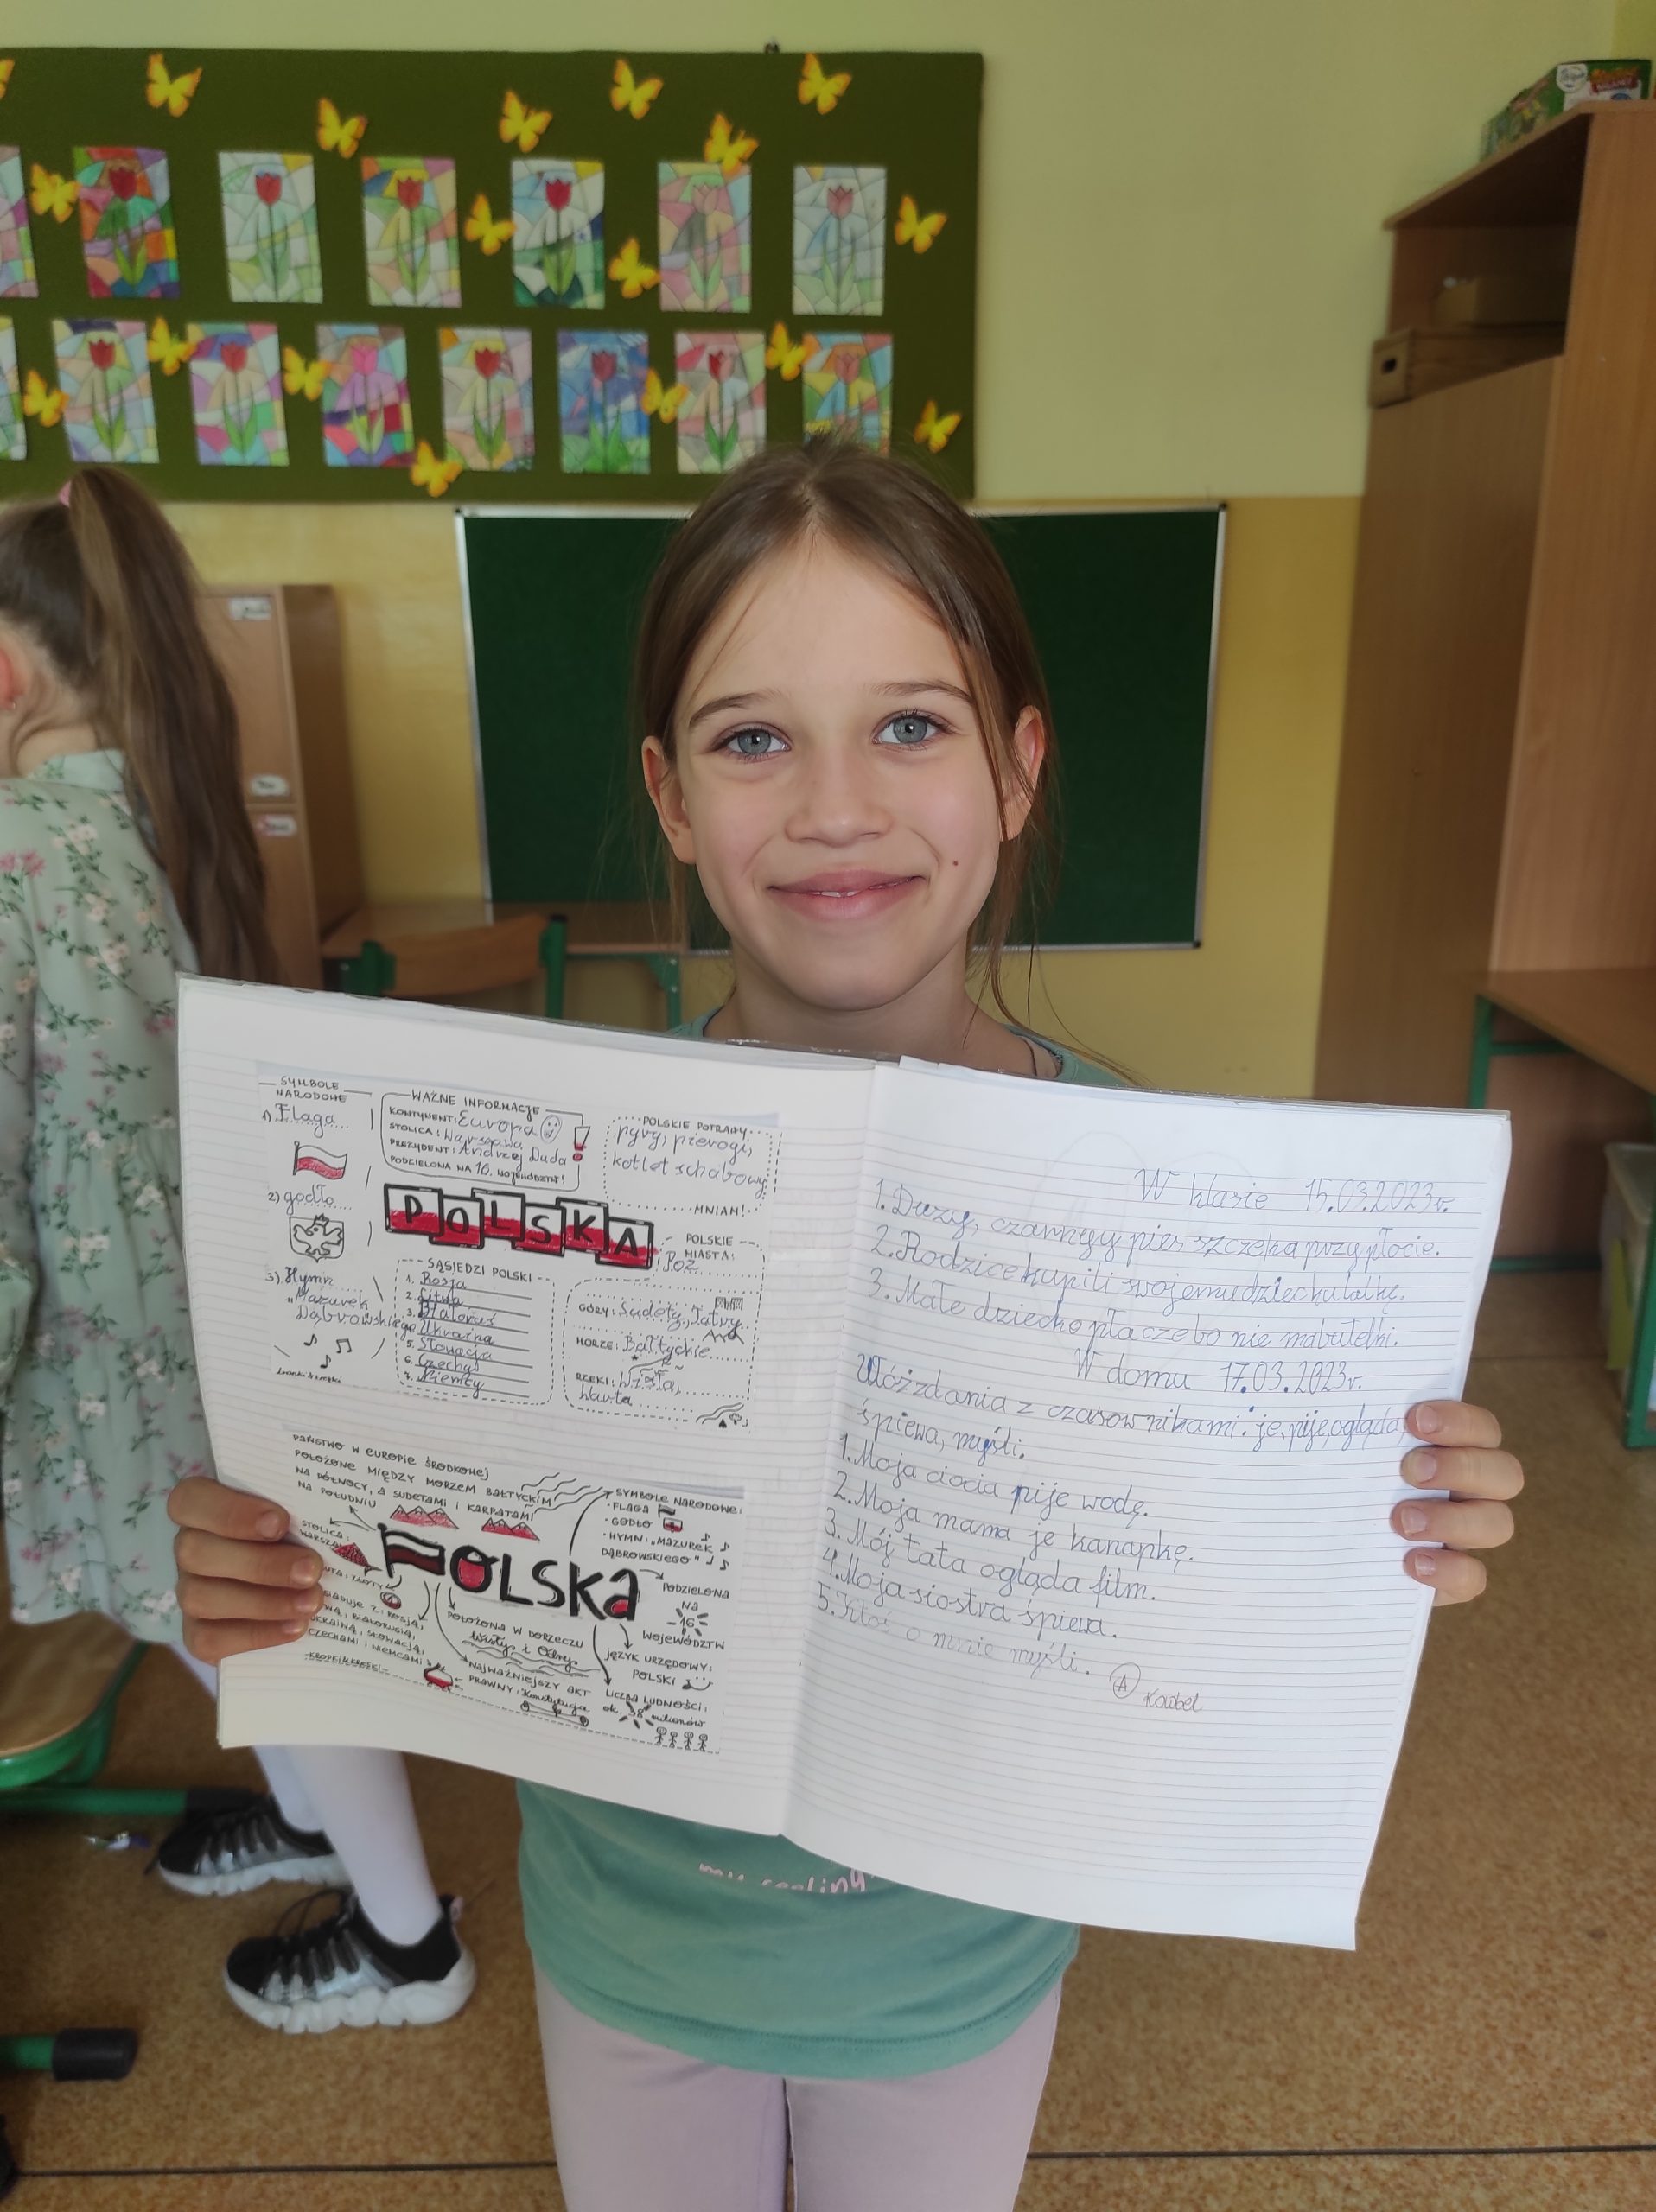 SYMBOLE
NARODOWE
1) Flaga
2) godło
3) Hymn
"Mazurek
Dąbrowskiego
WAŻNE INFORMACJE
KONTYNENT: Europa
STOLICA: Warszawa
PREZYDENT: Andrzej Duda
PODZIELONA NA 16 WOJEWÓDZTW!
POLSKIE POTRAWY
pyry, pierogi,
kotlet schabowy
MNIAM!
POLSKA
SĄSIEDZI POLSKI
1. Rosja
2. Litwa
3. Białoruś
Ukraina
5. Słowacja
6. Czechy
7. Niemcy
POLSKIE
MIASTA:
Poz
GÓRY: Sudety, Tatry
MORZE: Bałtyckie
RZEKI: Wisła,
Warta
PAŃSTWO W EUROPIE ŚRODKOWEJ
POŁOŻONE MIĘDZY MORZEM BAŁTYCKIM
NA PÓŁNOCY, A SUDETAMI I KARPATAMI
NA POŁUDNIU
STOLICA:
WARSZAWA
POLSKA
SYMBOLE NARODOWE:
• FLAGA
• GODŁO
• HYMN: „MAZUREK
DĄBROWSKIEGO"
PODZIELONA
NA
16
WOJEWÓDZTW
POŁOŻONA W DORZECZU
Wisły i Odry
NAJWAŻNIEJSZY AKT
PRAWNY: Konstytucja
JĘZYK URZĘDOWY:
POLSKI
LICZBA LUDNOŚCI:
ok. 38 milionów
ROSJĄ,
BIAŁORUSIĄ,
UKRAINĄ, SŁOWACJĄ,
CZECHAMI I NIEMCAMI
W klasie 15.03.2023r.
1. Duży, czarny pies szczeka przy płocie.
2. Rodzice kupili swojemu dziecku lalkę.
3. Małe dziecko płacze bo nie ma butelki.
W domu 17.03.2023r.
Ułóż zdania z czasownikami: je, pije, ogląda,
śpiewa, myśli.
1. Moja ciocia pije wodę.
2. Moja mama je kanapkę.
3. Mój tata ogląda film.
4. Moja siostra śpiewa.
5. Ktoś o mnie myśli.
A
my feeling